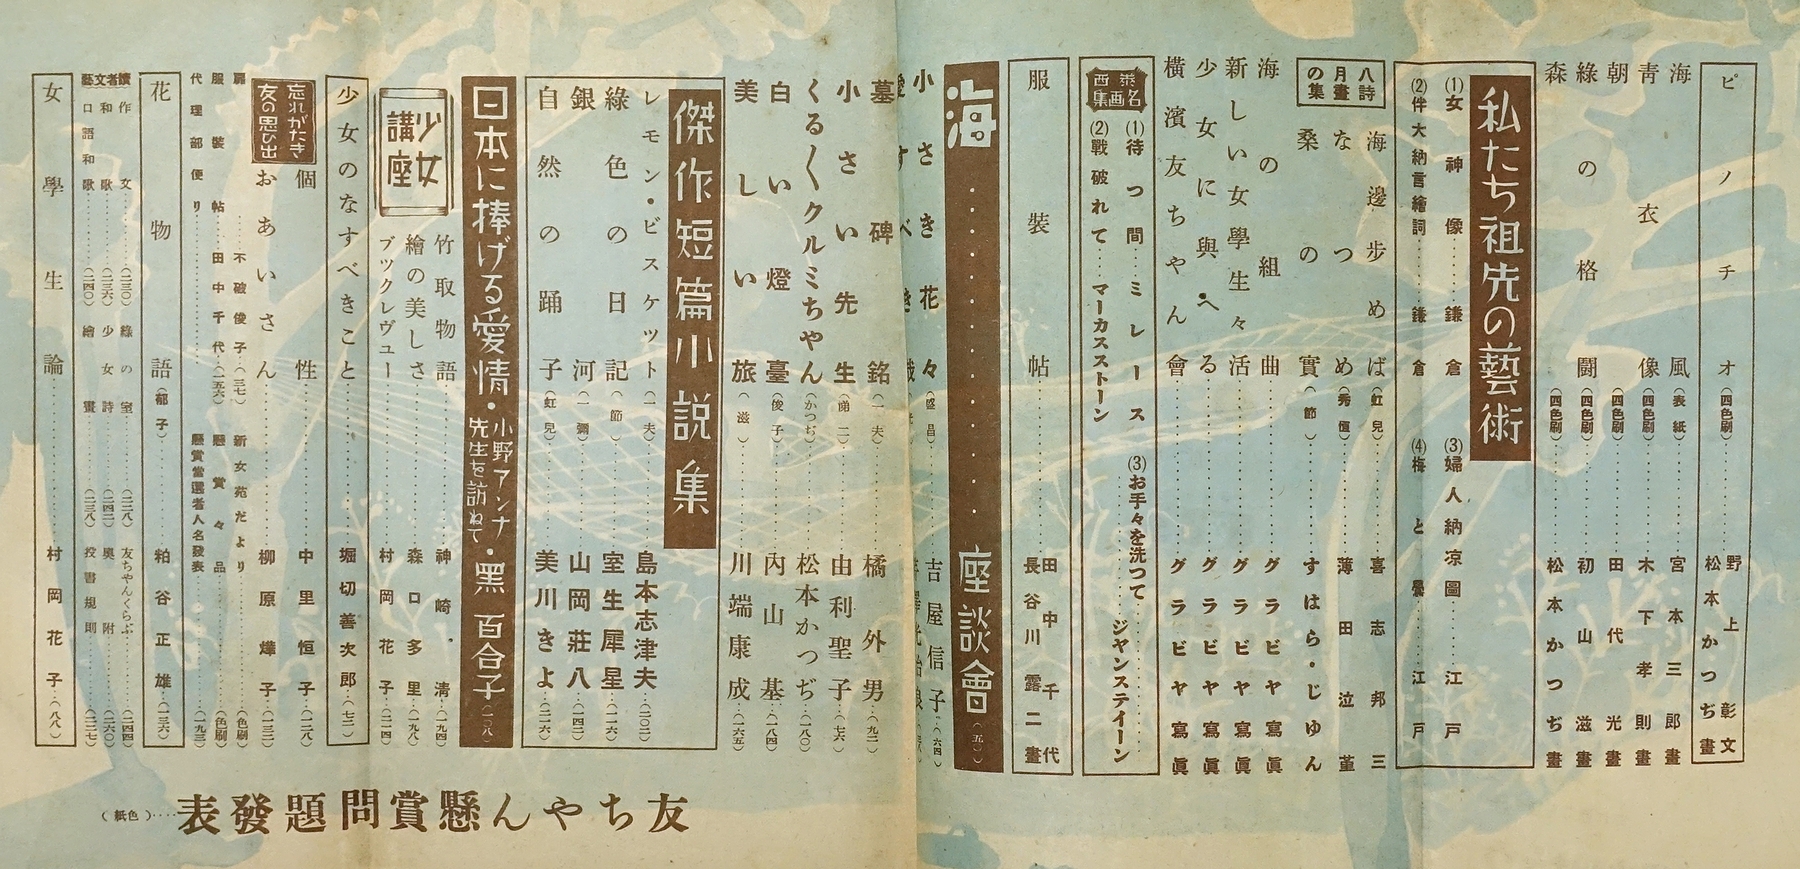 ピノチオ(四色刷) 野上彰文 松本かつぢ畫
海風(表紙) 宮本三郎畫
靑衣像(四色刷) 木下孝則畫
朝(四色刷) 田代光畫
綠の格鬪(四色刷) 初山滋畫
森(四色刷) 松本かつぢ畫
私たち祖先の藝術
(1)女神像 鎌倉
(2)伴大納言繪詞 鎌倉
(3)婦人納凉圖 江戸
(4)梅と 江戸
八月の詩畫集
海邊歩めば(虹兒) 喜志邦三
なつめ(秀恒) 薄田泣菫
桑の實(節) すはら・じゆん
海の組曲 グラビヤ寫眞
新しい女學生々活 グラビヤ寫眞
少女に與へる グラビヤ寫眞
横濱友ちやん會 グラビヤ寫眞
泰西名画集
(1)待つ間 ミレース
(2)戰破れて マーカスストーン
(3)お手々を洗つて ジヤンステイーン
服裝帖 田中千代 長谷川露二畫
海 座談會(五)
小さき花々(盛昌) 吉屋信子(六四)
愛すべき
墓碑銘(一夫) 橘外男(九二)
小さい先生(悌二) 由利聖子(七六)
くるくるクルミちやん(かつぢ) 松本かつぢ(一八〇)
白い燈臺(俊子) 内山基(一八四)
美しい旅(滋) 川端康成(一六五)
傑作短篇小説集
レモン・ビスケツト(一夫) 島本志津夫(二〇二)
綠色の日記(節) 室生犀星(一一六)
銀河(一彌) 山岡莊八(一四二)
自然の踊子(虹兒) 美川きよ(二一六)
日本に捧げる愛情・小野アンナ先生を訪ねて・黑百合子(一〇八)
少女講座
竹取物語 神崎淸(一九四)
繪の美しさ 森口多里(一九八)
ブツクレヴユー 村岡花子(二一四)
少女のなすべきこと 堀切善次郎(七三)
忘れがたき友の思ひ出
個性 中里恒子(一二八)
おあいさん 柳原燁子(一三二)
扉 不破俊子(三七)
服裝帖 田中千代(一五六)
代理部便り
新女苑だより(色刷)
懸賞々品(色刷)
懸賞當選者人名發表(一九三)
花物語(郁子) 粕谷正雄(一三六)
讀者文藝
作文(二三〇)
和歌(二三六)
口語和歌(二四〇)
綠の室(二二八)
少女詩(二四二)
繪畫(二三八)
友ちやんくらぶ(二四四)
奥附(二六〇)
投書規則(二二七)
女學生論 村岡花子(八八)
友ちやん懸賞問題發表(色紙)